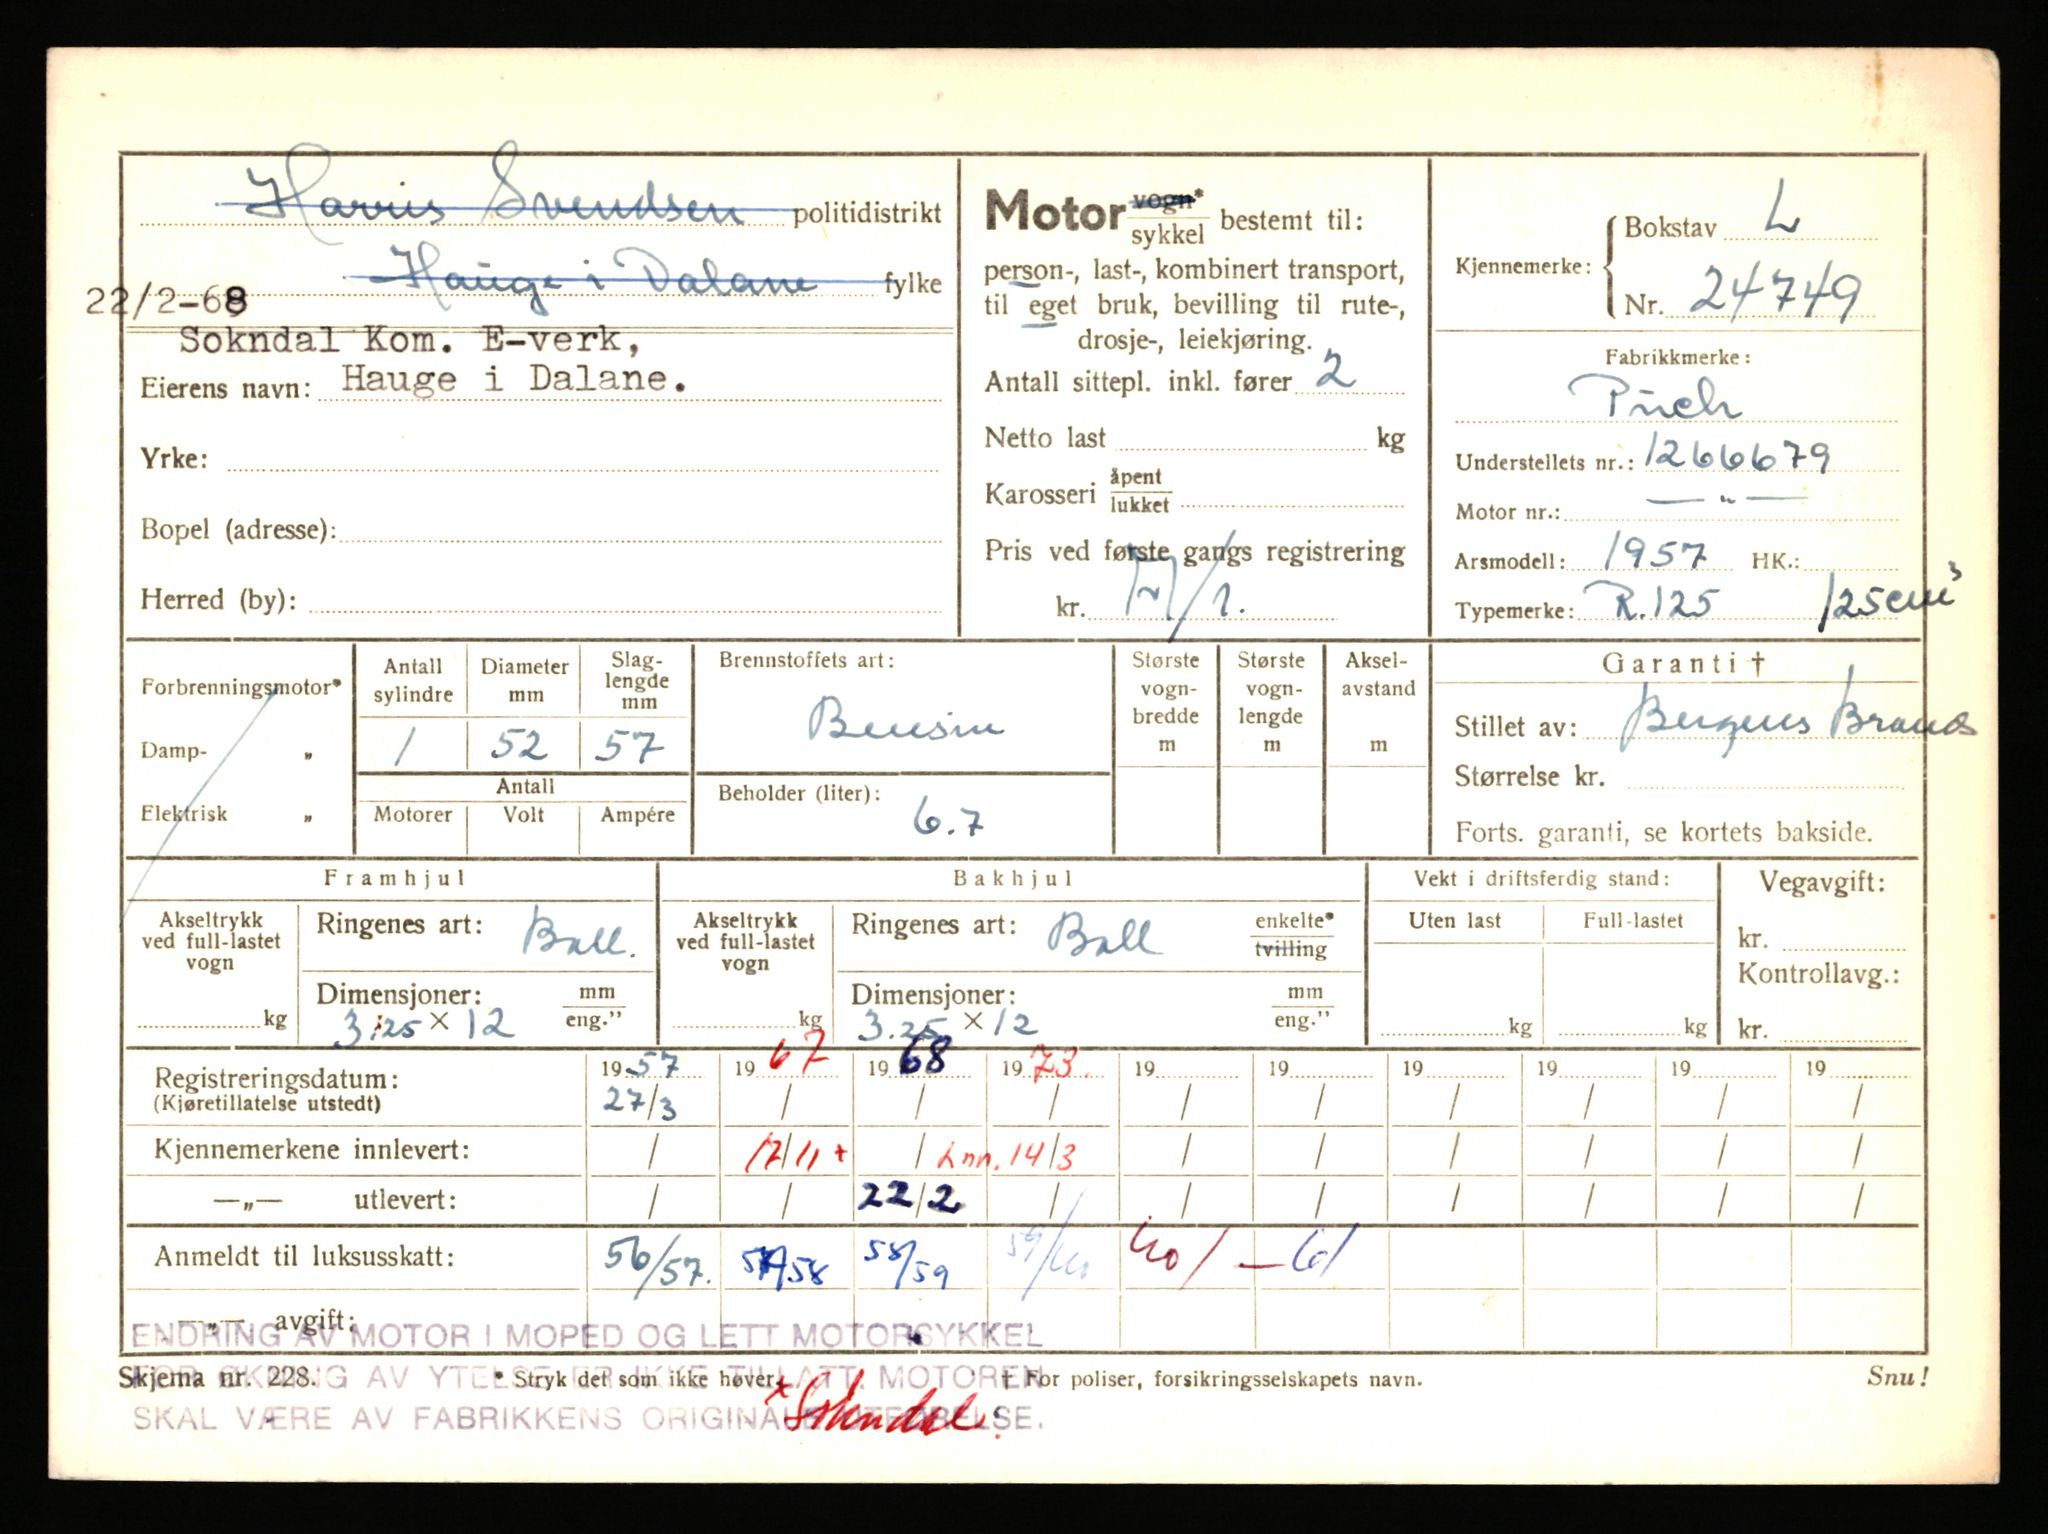 Harris Svendsen politidistrikt
Hauge i Dalane fylke
22/2-68
Sokndal Kom. E-verk,
Eierens navn: Hauge i Dalane.
Yrke:
Bopel (adresse):
Herred (by):
Motor vogn* sykkel bestemt til:
person-, last-, kombinert transport,
til eget bruk, bevilling til rute-,
drosje-, leiekjøring.
Antall sittepl. inkl. fører 2
Netto last kg
Karosseri åpent lukket
Pris ved første gangs registrering
kr.
Kjennemerke: Bokstav L
Nr. 24749
Fabrikkmerke:
Püch
Understellets nr.: 1266679
Motor nr.: — " —
Arsmodell: 1957 HK.:
Typemerke: R.125 125cm³
Forbrenningsmotor*
Damp- „
Elektrisk „
Antall sylindre
1
Diameter mm
52
Slag-lengde mm
57
Antall
Motorer Volt Ampére
Brennstoffets art:
Bensin
Beholder (liter):
6.7
Største vogn-bredde m
Største vogn-lengde m
Aksel-avstand m
Garanti †
Stillet av: Bergens Brand
Størrelse kr.
Forts. garanti, se kortets bakside.
Framhjul
Akseltrykk ved full-lastet vogn
kg
Ringenes art: Ball.
Dimensjoner: mm eng."
3.25 × 12
Bakhjul
Akseltrykk ved full-lastet vogn
kg
Ringenes art: Ball enkelte* tvilling
Dimensjoner: mm eng."
3.25 × 12
Vekt i driftsferdig stand:
Uten last Full-lastet
kg kg
Vegavgift:
kr.
Kontrollavg.:
kr.
Registreringsdatum: 19 57 19 67 19 68 19 73. 19 19 19 19 19 19
(Kjøretillatelse utstedt) 27/3 / / / / / / / / /
Kjennemerkene innlevert: / 17/11 + / Inn. 14/3 / / / / / /
—„— utlevert: / / 22/2 / / / / / / /
Anmeldt til luksusskatt: 56/57. 57/58 58/59 59/60 60/-61
—„— avgift:
ENDRING AV MOTOR I MOPED OG LETT MOTORSYKKEL
FOR ØKNING AV YTELSE ER IKKE TILLATT. MOTOREN
SKAL VÆRE AV FABRIKKENS ORIGINALE UTFØRELSE.
Skjema nr. 228. * Stryk det som ikke høver. † For poliser, forsikringsselskapets navn. Snu!
× Sokndal.